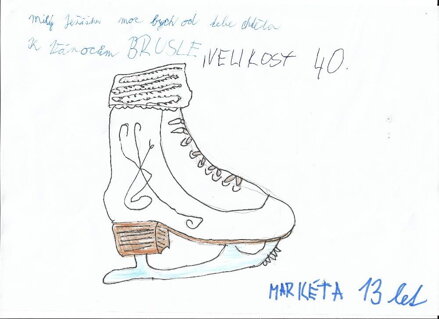 Milý Ježíšku moc bych od tebe chtěla
K Vánocům BRUSLE, VELIKOST 40.
MARKÉTA 13 let